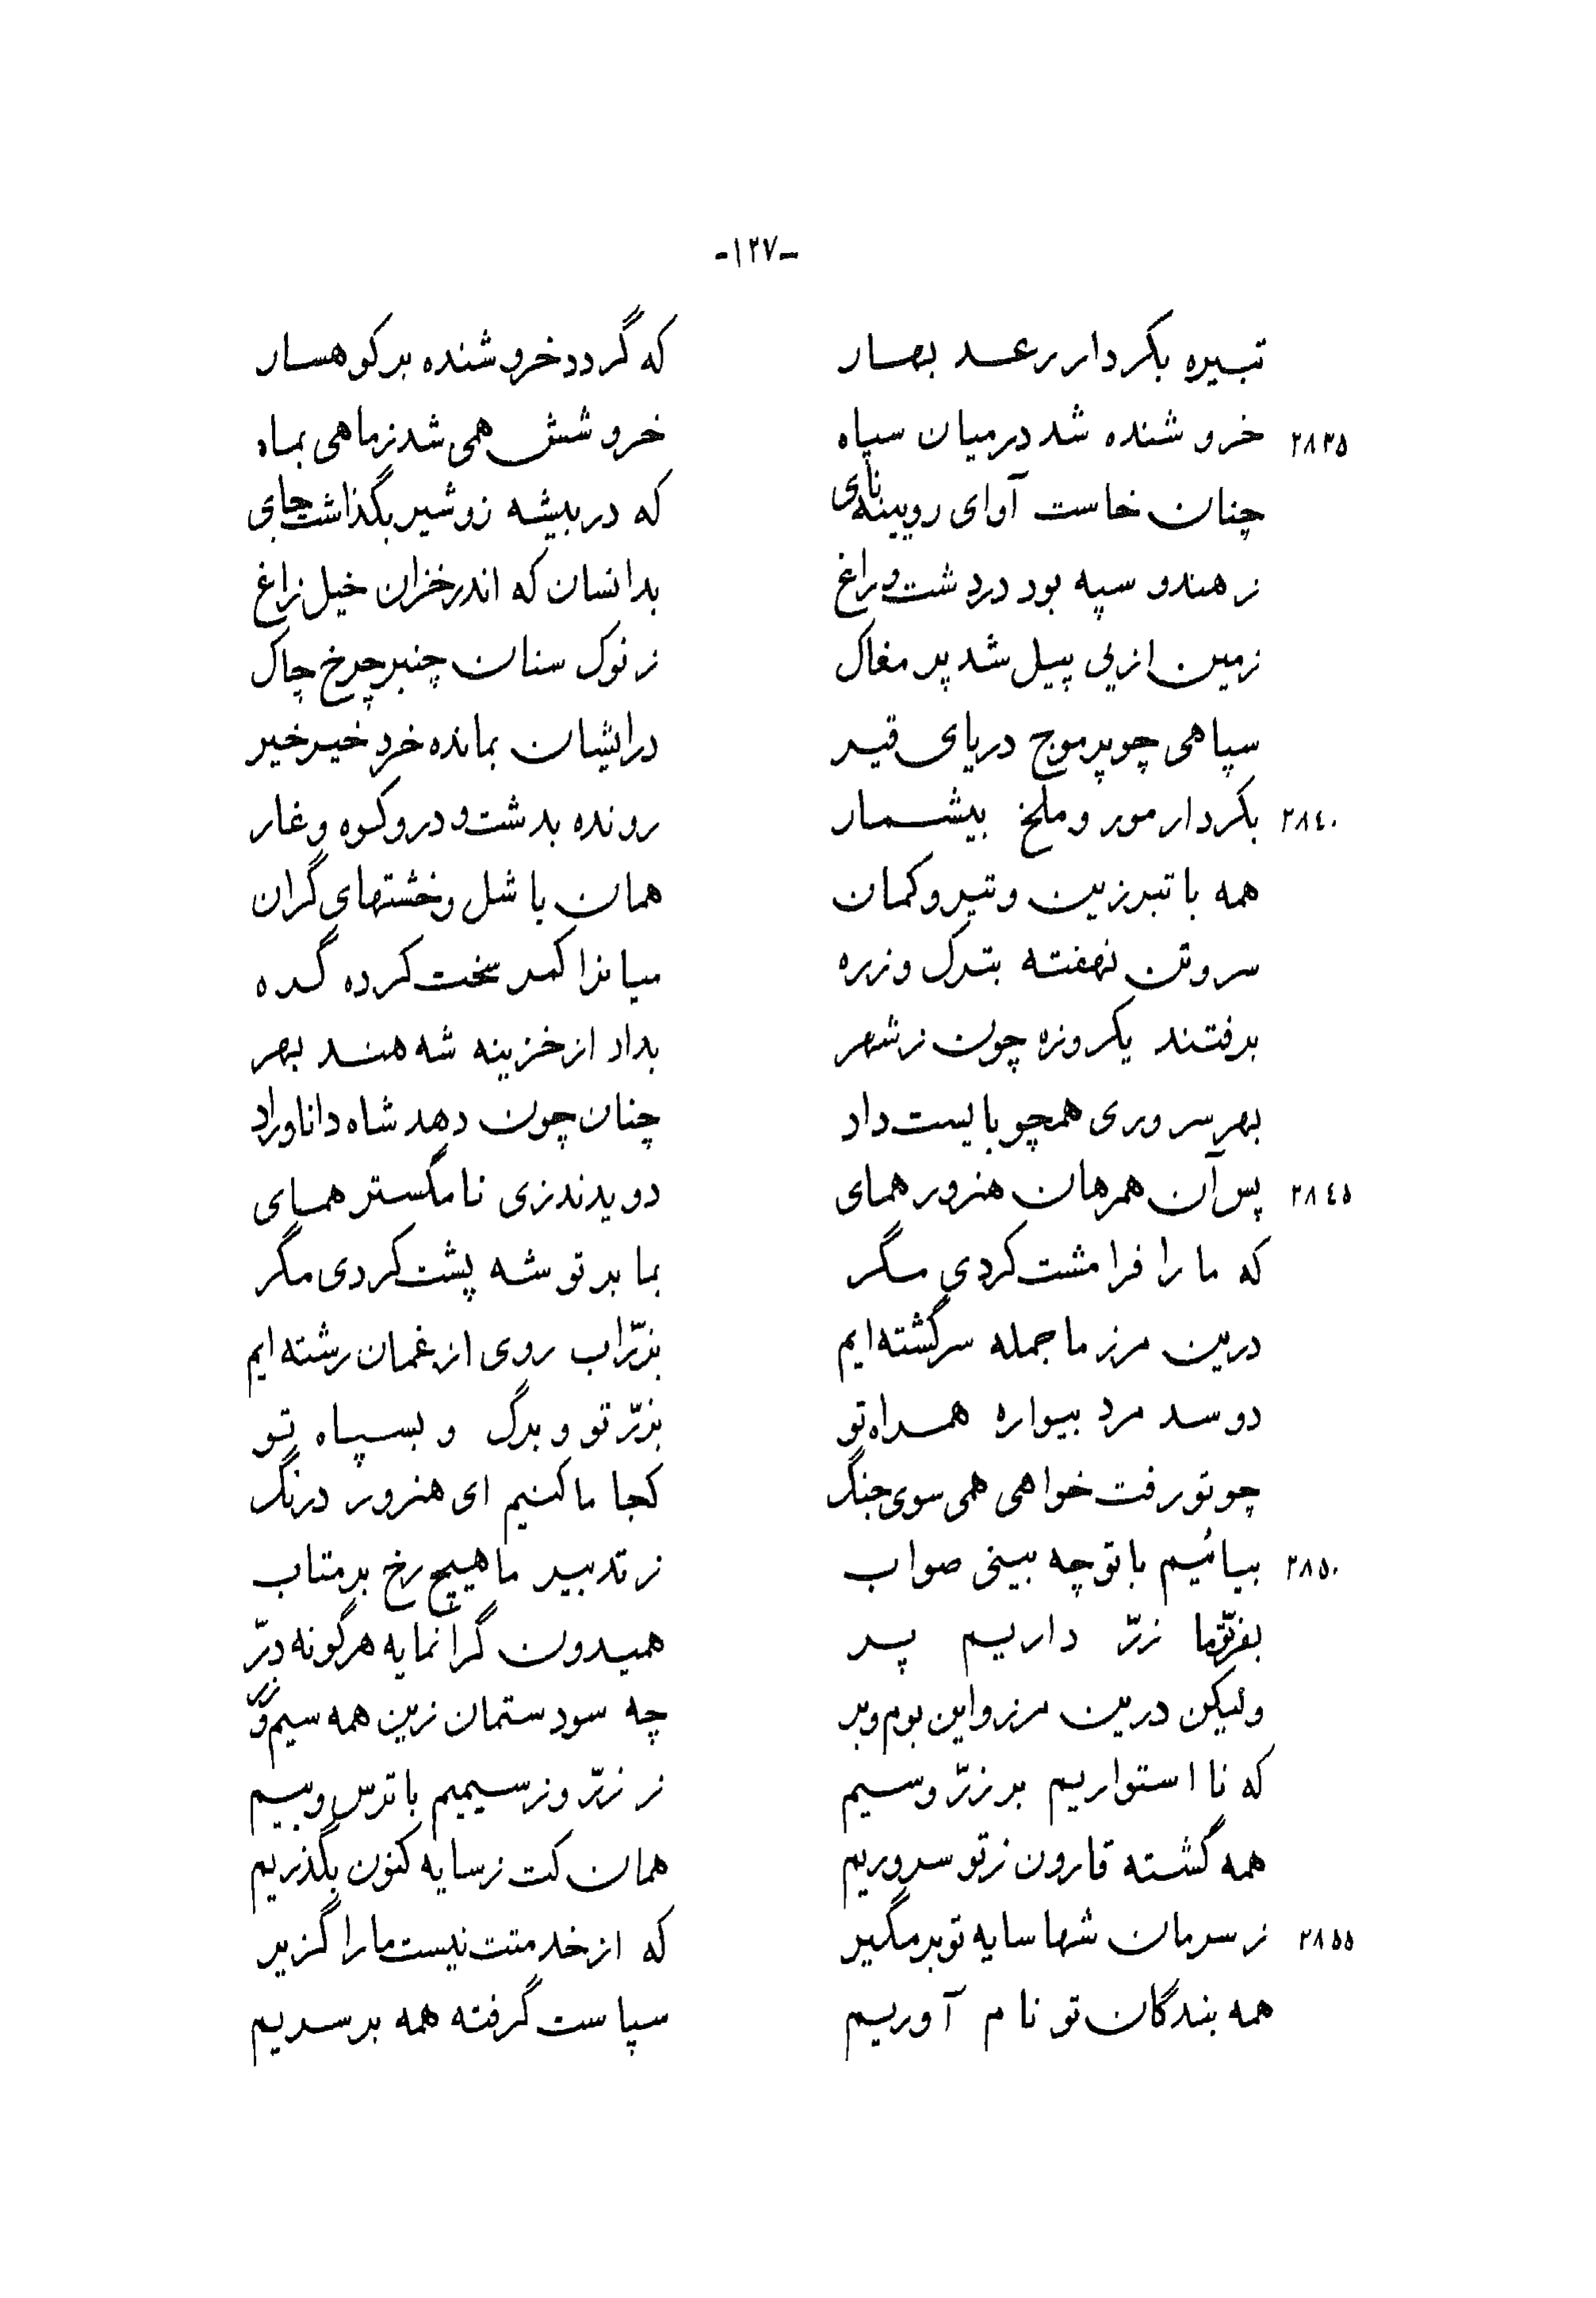 -۱۲۷-
تبیره بکردار رعد بهار که گردد خروشنده بر کوهسار
۲۸۳۵ خروشنده شد در میان سپاه خروشش همی شد ز ماهی بماه
چنان خاست آوای رویینه نای که در بیشه زو شیر بگذاشت جای
ز هندو سپه بود در دشت و راغ بدانسان که اندر خزان خیل زاغ
زمین از پی پیل شد پر مغاک ز نوک سنان چنبر چرخ چاک
سپاهی چو پر موج دریای قیر در ایشان بمانده خرد خیر خیر
۲۸٤۰ بکردار مور و ملخ بیشمار رونده بدشت و در و کوه و غار
همه با تبرزین و تیر و کمان همان با شل و خشتهای گران
سر و تن نهفته بترک و زره میانرا کمر سخت کرده گره
برفتند یکروزه چون ز شهر بداد از خزینه شه هند بهر
بهر سروری همچو بایست داد چنان چون دهد شاه دانا و راد
۲۸٤۵ پس آن همرهان هنرور همای دویدند زی نامگستر همای
که ما را فرامشت کردی مگر بما بر تو شه پشت کردی مگر
درین مرز ما جمله سرگشته‌ایم بزرّاب روی از غمان رشته‌ایم
دو سد مرد بیواره همراه تو بزرّ تو و برگ و بسپاه تو
چو تو رفت خواهی همی سوی جنگ کجا ما کنیم ای هنرور درنگ
۲۸۵۰ بیائیم با تو چه بینی صواب ز تدبیر ما هیچ رخ بر متاب
بفرّتها زرّ داریم پر همیدون گرانمایه هرگونه درّ
ولیکن درین مرز و این بوم و بر چه سودستمان زین همه سیم و زر
که نا استواریم بر زرّ و سیم ز زرّ و ز سیمیم با ترس و بیم
همه گشته قارون ز تو سروریم همان کت ز سایه کنون بگذریم
۲۸۵۵ ز سرمان شها سایه تو بر مگیر که از خدمتت نیست ما را گزیر
همه بندگان تو نام آوریم سپاست گرفته همه بر سریم